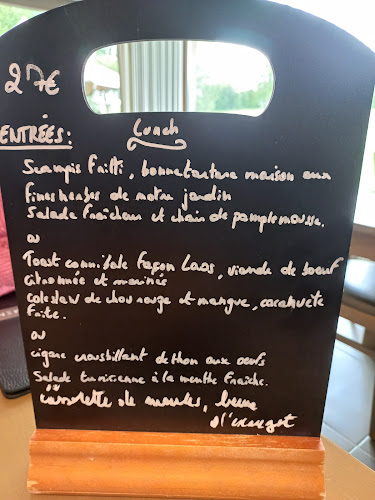 27€
Lunch
ENTRÉES:
Scampis Fritti, bonne tartare maison aux
fines herbes de notre jardin
Salade Fraîcheur et chair de pamplemousse.
ou
Toast cannibale façon Laos, viande de bœuf
citronnée et marinée
coleslaw de chou rouge et mangue, cacahuète
frite.
ou
cigare croustillant de thon aux oeufs
Salade tunisienne à la menthe fraîche.
ou
cassolette de moules, beurre
d'escargot